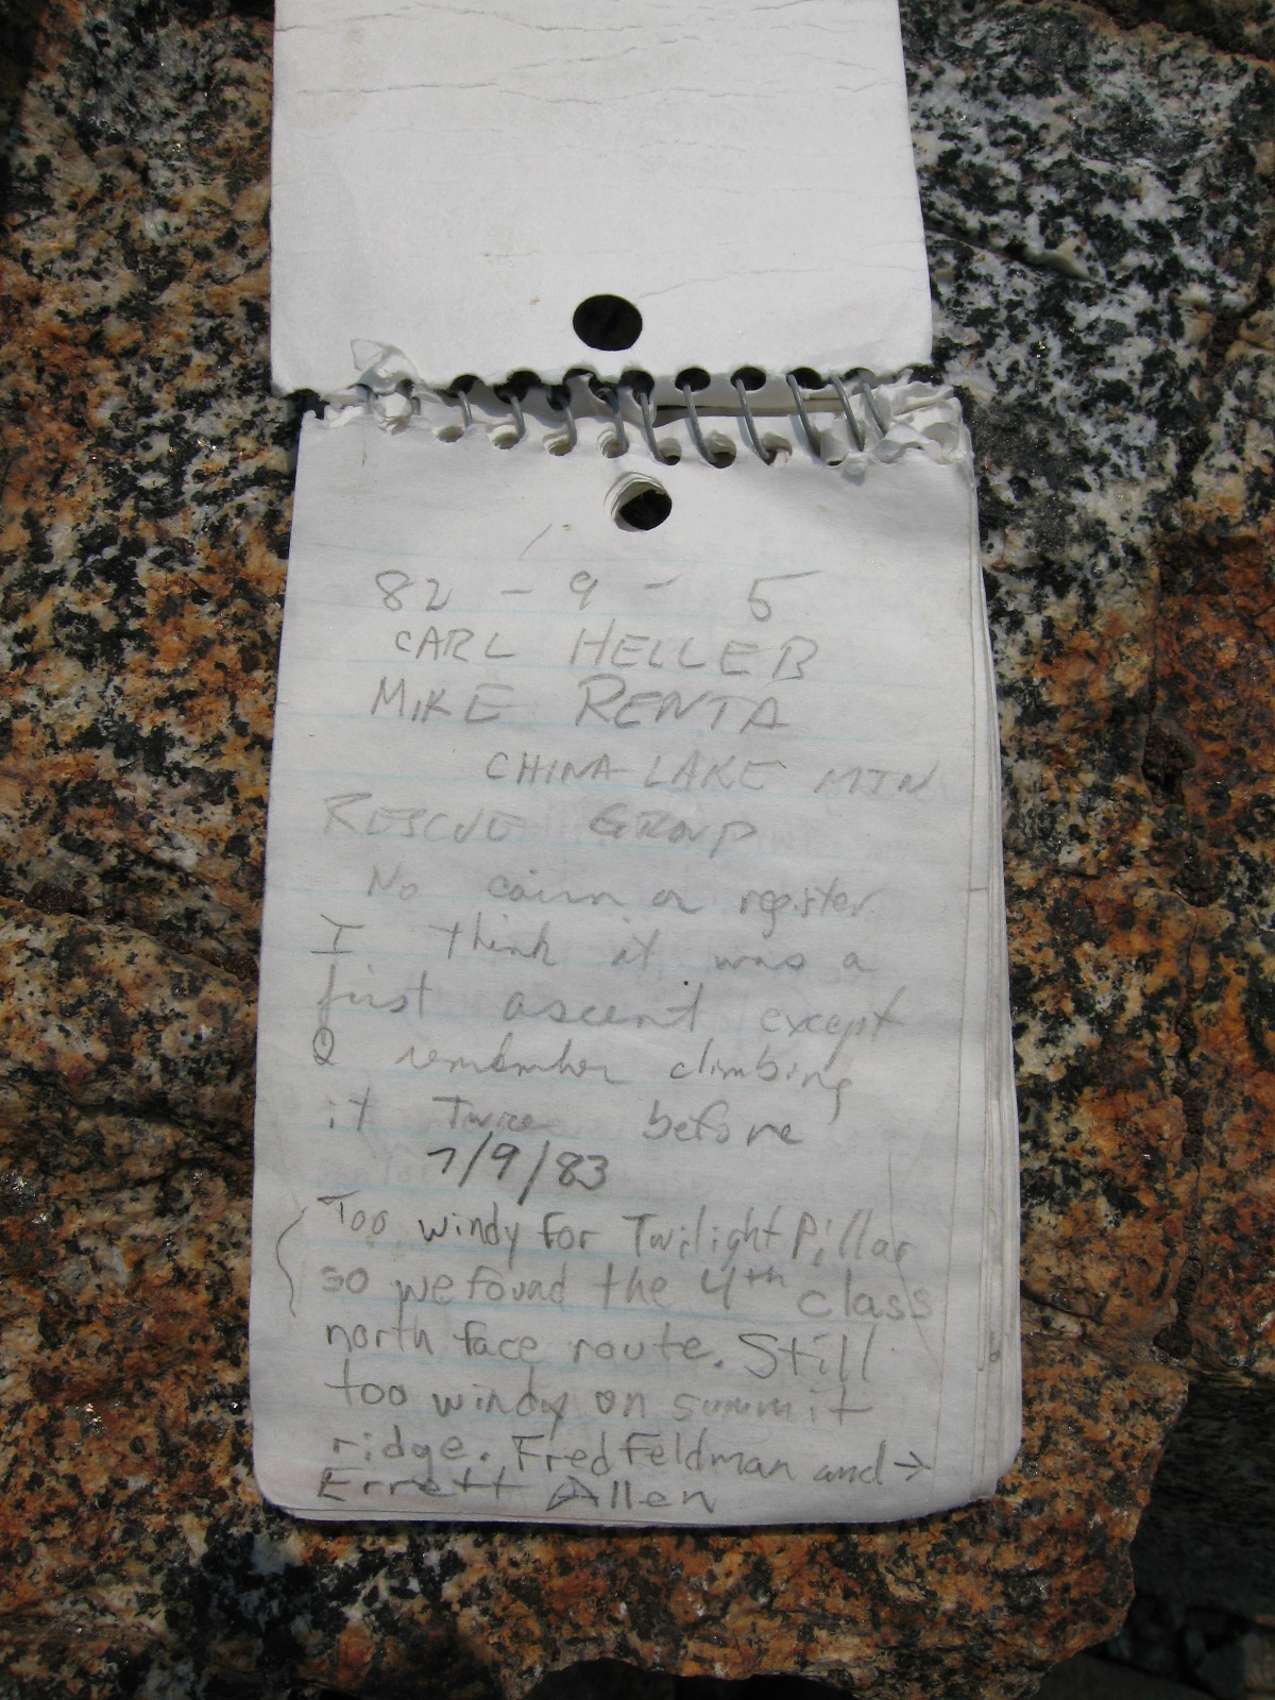 82 - 9 - 5
CARL HELLER
MIKE RENTA
CHINA LAKE MTN
RESCUE GROUP
No cairn or register
I think it was a
first ascent except
I remember climbing
it Twice before
7/9/83
Too windy for Twilight Pillar
so we found the 4th class
north face route. Still
too windy on summit
ridge. Fred Feldman and →
Errett Allen